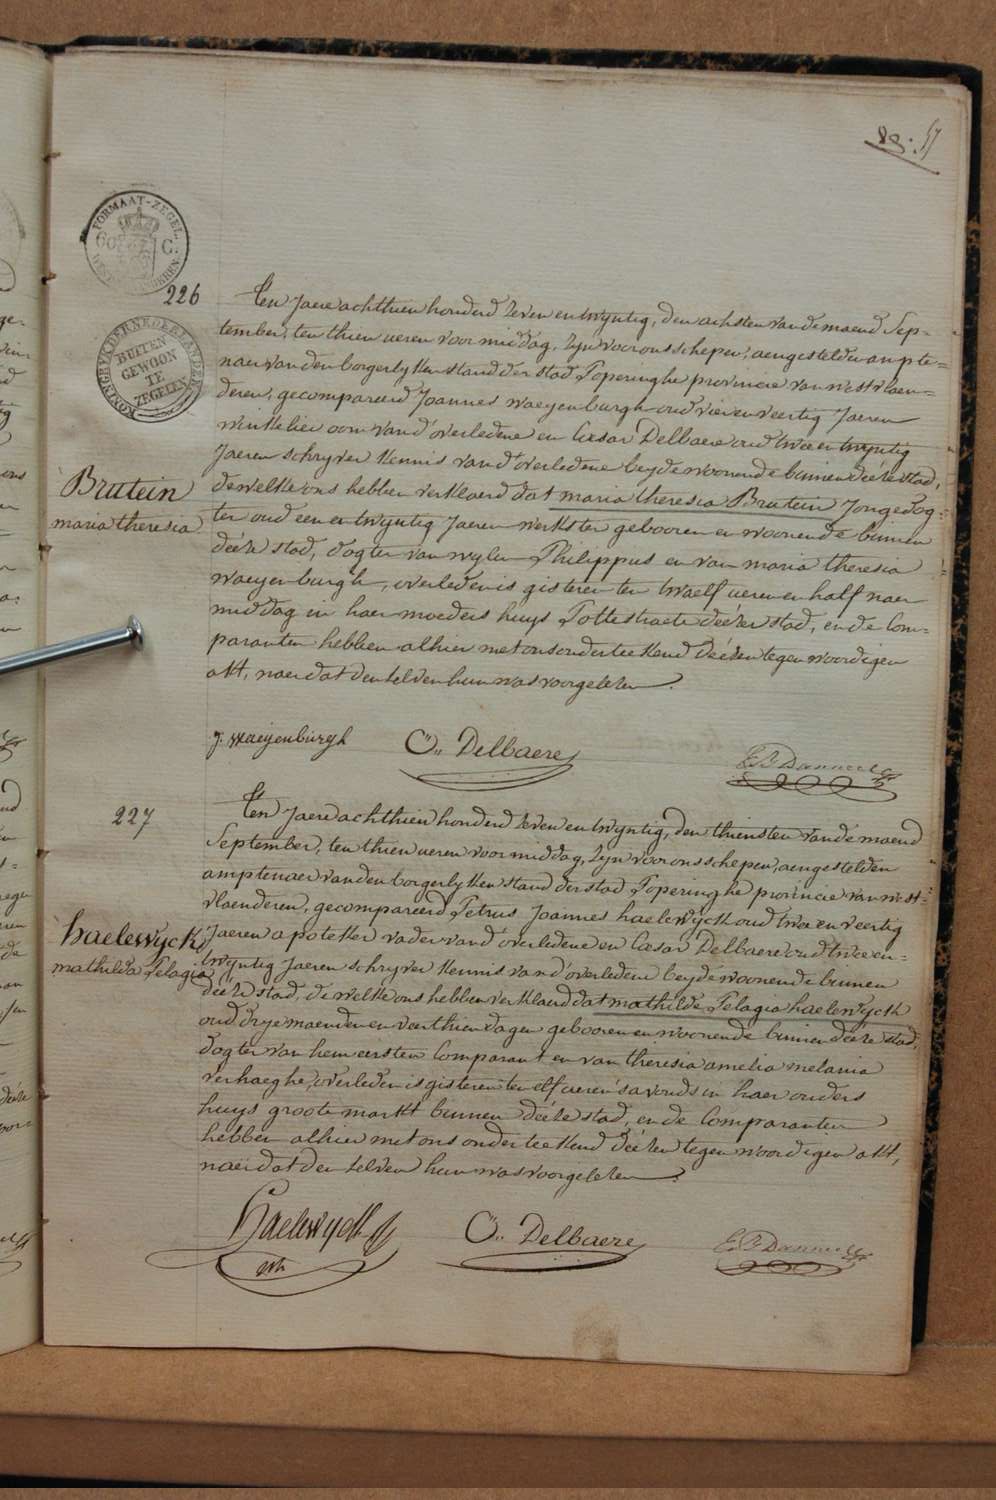 FORMAAT-ZEGEL
60 C.
226
KONINGRYK DER NEDERLANDEN
BUITEN
GEWOON
TE
ZEGELEN
Ten Jaere achthien honderd zeven en twyntig, den achsten van de maend Sep-
tember, ten thien ueren voormiddag, zyn voor ons schepen, aengestelden ampte-
naer van den borgerlyken stand der stad Poperinghe provincie van westvlaen-
deren, gecompareerd Joannes waeyenburgh oud vier en veertig Jaeren
winkelier oom van d'overledene en Cæsar Delbaere oud twee en twyntig
Jaeren schryver Kennis van d'overledene beyde woonende binnen déeze stad,
Brutein
maria theresia
dewelke ons hebben verklaerd dat maria theresia Brutein Jongedog-
ter oud een en twyntig Jaeren werkster gebooren en woonende binnen
déeze stad, dogter van wylen Philippus en van maria theresia
waeyenburgh, overleden is gisteren ten twaelf ueren en half naer
middag in haer moeders huys Pottestraete déezer stad, en de Com-
paranten hebben alhier met ons onderteekend déezen tegenwoordigen
akt, naer dat den zelven hun was voorgelezen.
j. Waeijenburgh C.. Delbaere
227
Ten Jaere achthien honderd zeven en twyntig, den thiensten van de maend
September, ten thien ueren voormiddag, zyn voor ons schepen, aengestelden
amptenaer van den borgerlyken stand der stad Poperinghe provincie van west-
vlaenderen, gecompareerd Petrus Joannes haelewyck oud twee en veertig
haelewyck
mathilda Pelagia
Jaeren apoteker vader van d'overledene en Cæsar Delbaere oud twee en-
twyntig Jaeren schryver Kennis van d'overledene beyde woonende binnen
déeze stad, dewelke ons hebben verklaerd dat mathilde Pelagia haelewyck
oud drye maenden en veerthien dagen gebooren en woonende binnen déeze stad,
dogter van hem eersten Comparant en van theresia amelia melania
verhaeghe, overleden is gisteren ten elf ueren s'avonds in haer ouders
huys groote markt binnen déeze stad, en de Comparanten
hebben alhier met ons onderteekend déezen tegenwoordigen akt,
naer dat den zelven hun was voorgelezen.
Haelewyck C.. Delbaere